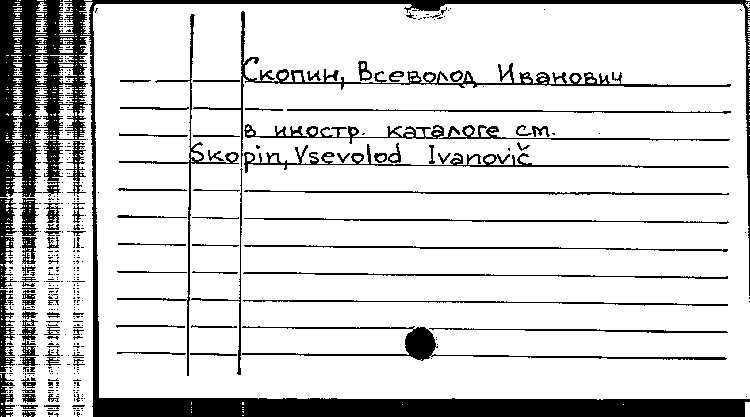 Скопин, Всеволод Иванович
в иностр. каталоге см.
Skopin, Vsevolod Ivanovič